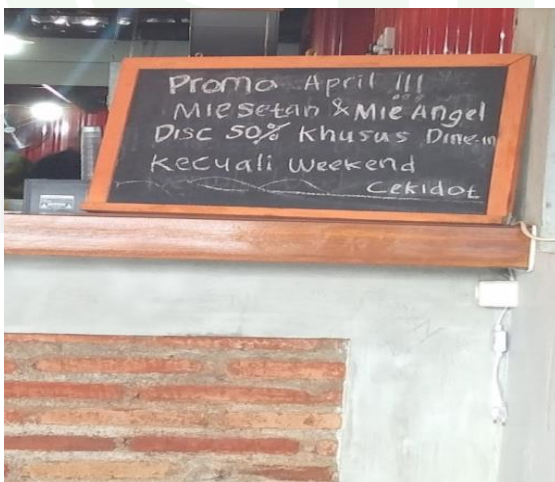 Promo April !!!
Mie setan & Mie Angel
Disc 50% Khusus Dine-in
Kecuali Weekend
Cekidot